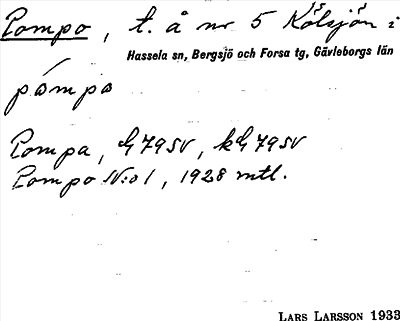 Pompo, t. å nr 5 Kölsjön i
Hassela sn, Bergsjö och Forsa tg, Gävleborgs län
pómpo
Pompa, G 79 SV, kG 79 SV
Pompo N:o 1, 1928 mtl.
LARS LARSSON 1933